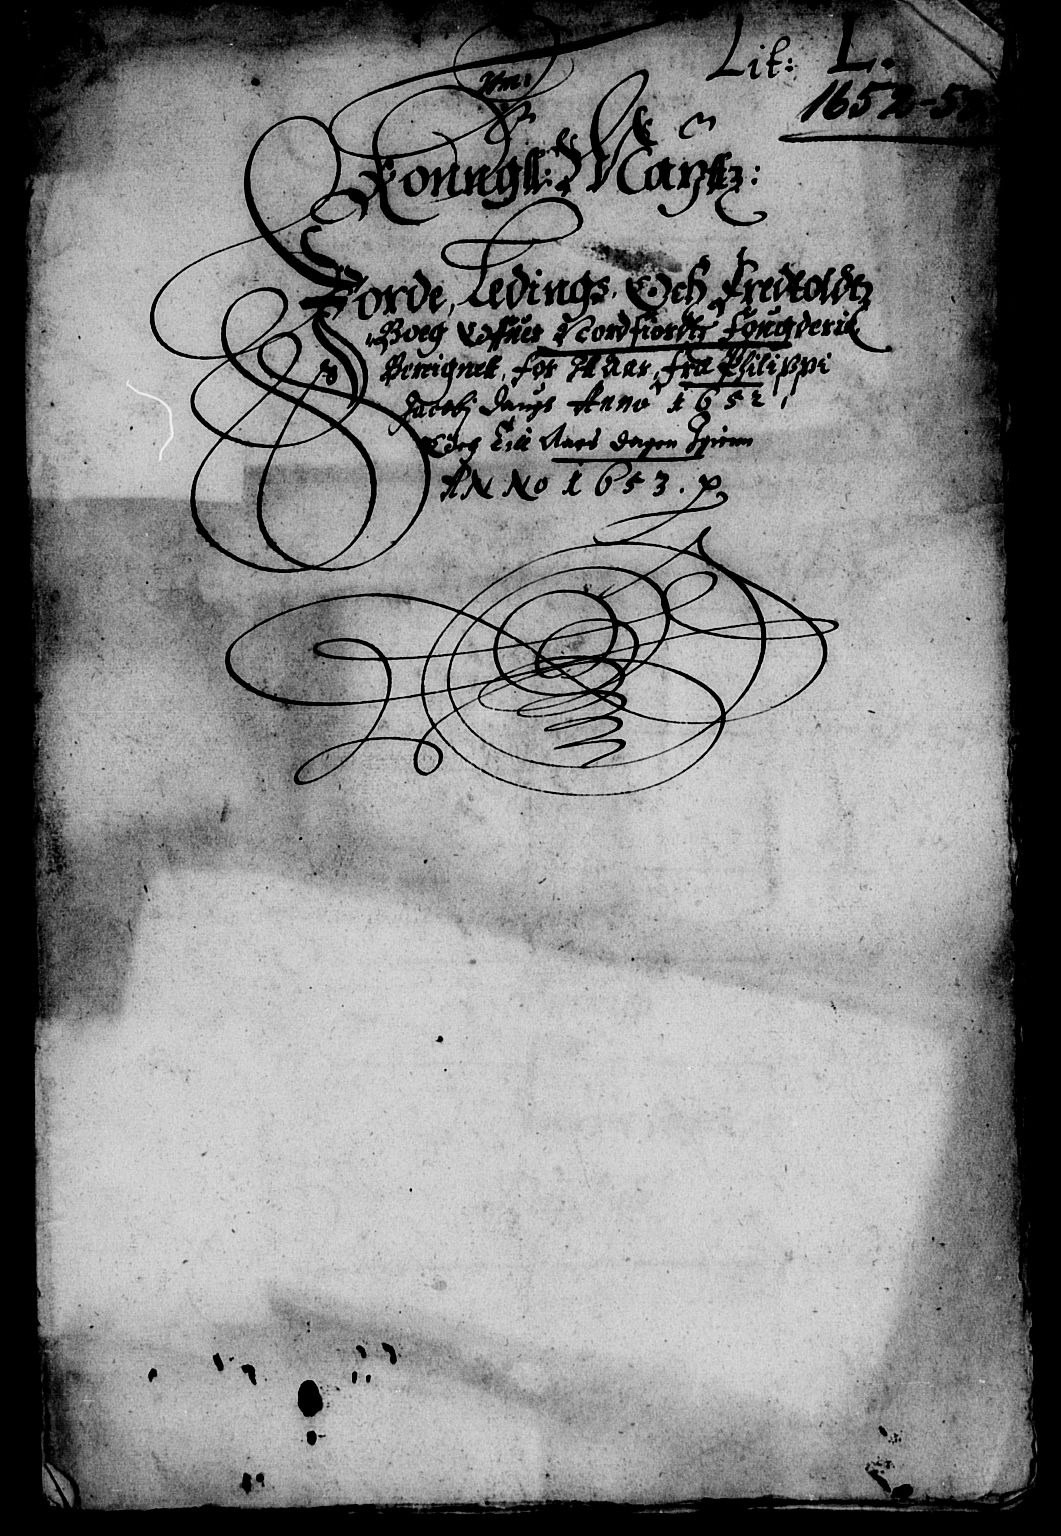 Lit: L.
1652-53
Konngl: Maÿstz:
Jorde, Ledings, Och Fredtoldtz
Boeg Offuer Nordfiordtz Fougderie
Bereignet, for Et Aar, fra Philippi
Jacobj Daugs Anno 1652,
Och Till Aars dagen Igien
ANNo 1653.